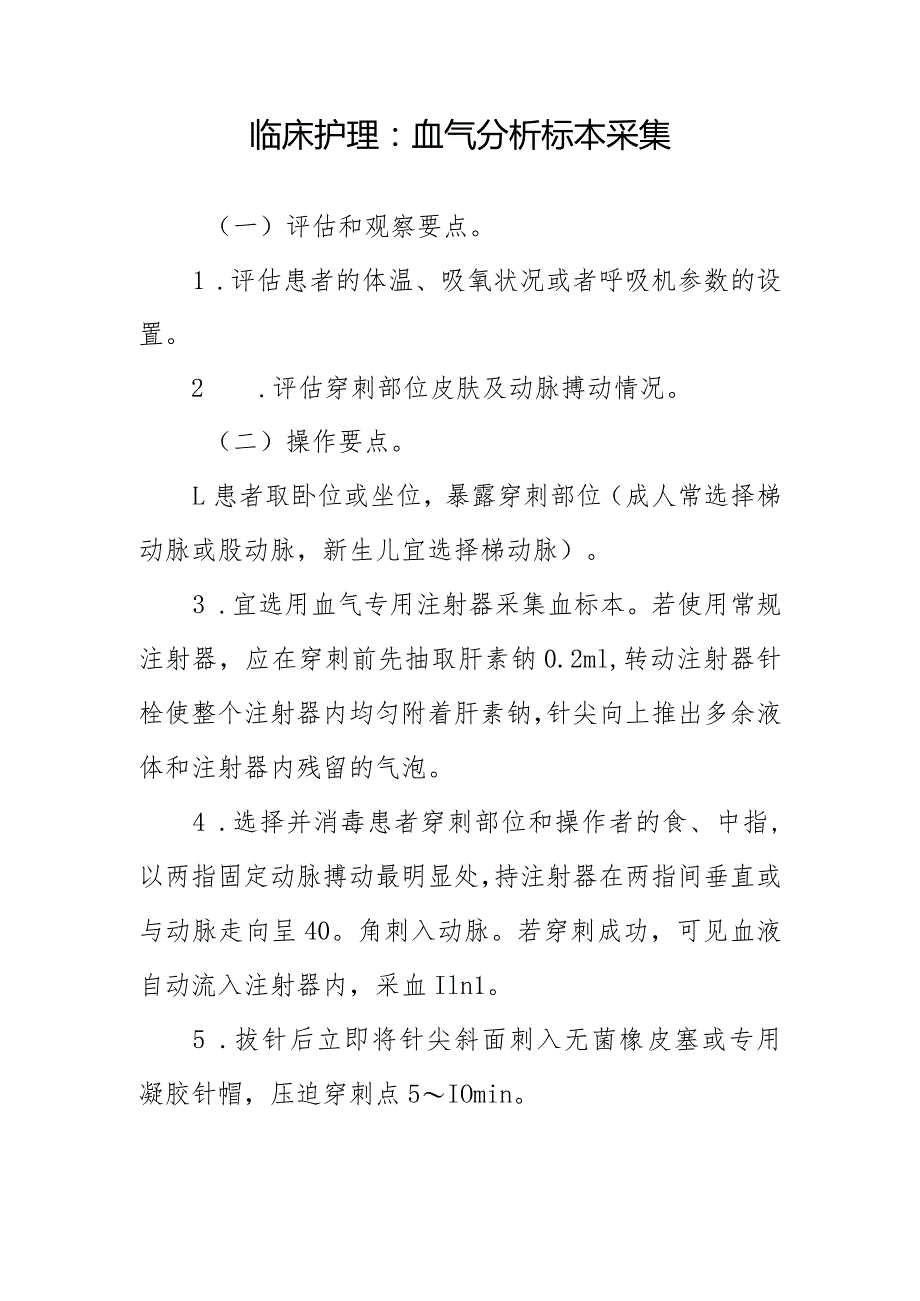 临床护理：血气分析标本采集
（一）评估和观察要点。
1 .评估患者的体温、吸氧状况或者呼吸机参数的设
置。
2 .评估穿刺部位皮肤及动脉搏动情况。
（二）操作要点。
L患者取卧位或坐位，暴露穿刺部位（成人常选择梯
动脉或股动脉，新生儿宜选择梯动脉）。
3 .宜选用血气专用注射器采集血标本。若使用常规
注射器，应在穿刺前先抽取肝素钠0.2ml,转动注射器针
栓使整个注射器内均匀附着肝素钠,针尖向上推出多余液
体和注射器内残留的气泡。
4 .选择并消毒患者穿刺部位和操作者的食、中指,
以两指固定动脉搏动最明显处,持注射器在两指间垂直或
与动脉走向呈40。角刺入动脉。若穿刺成功，可见血液
自动流入注射器内，采血Iln1。
5 .拔针后立即将针尖斜面刺入无菌橡皮塞或专用
凝胶针帽，压迫穿刺点5～IOmin。